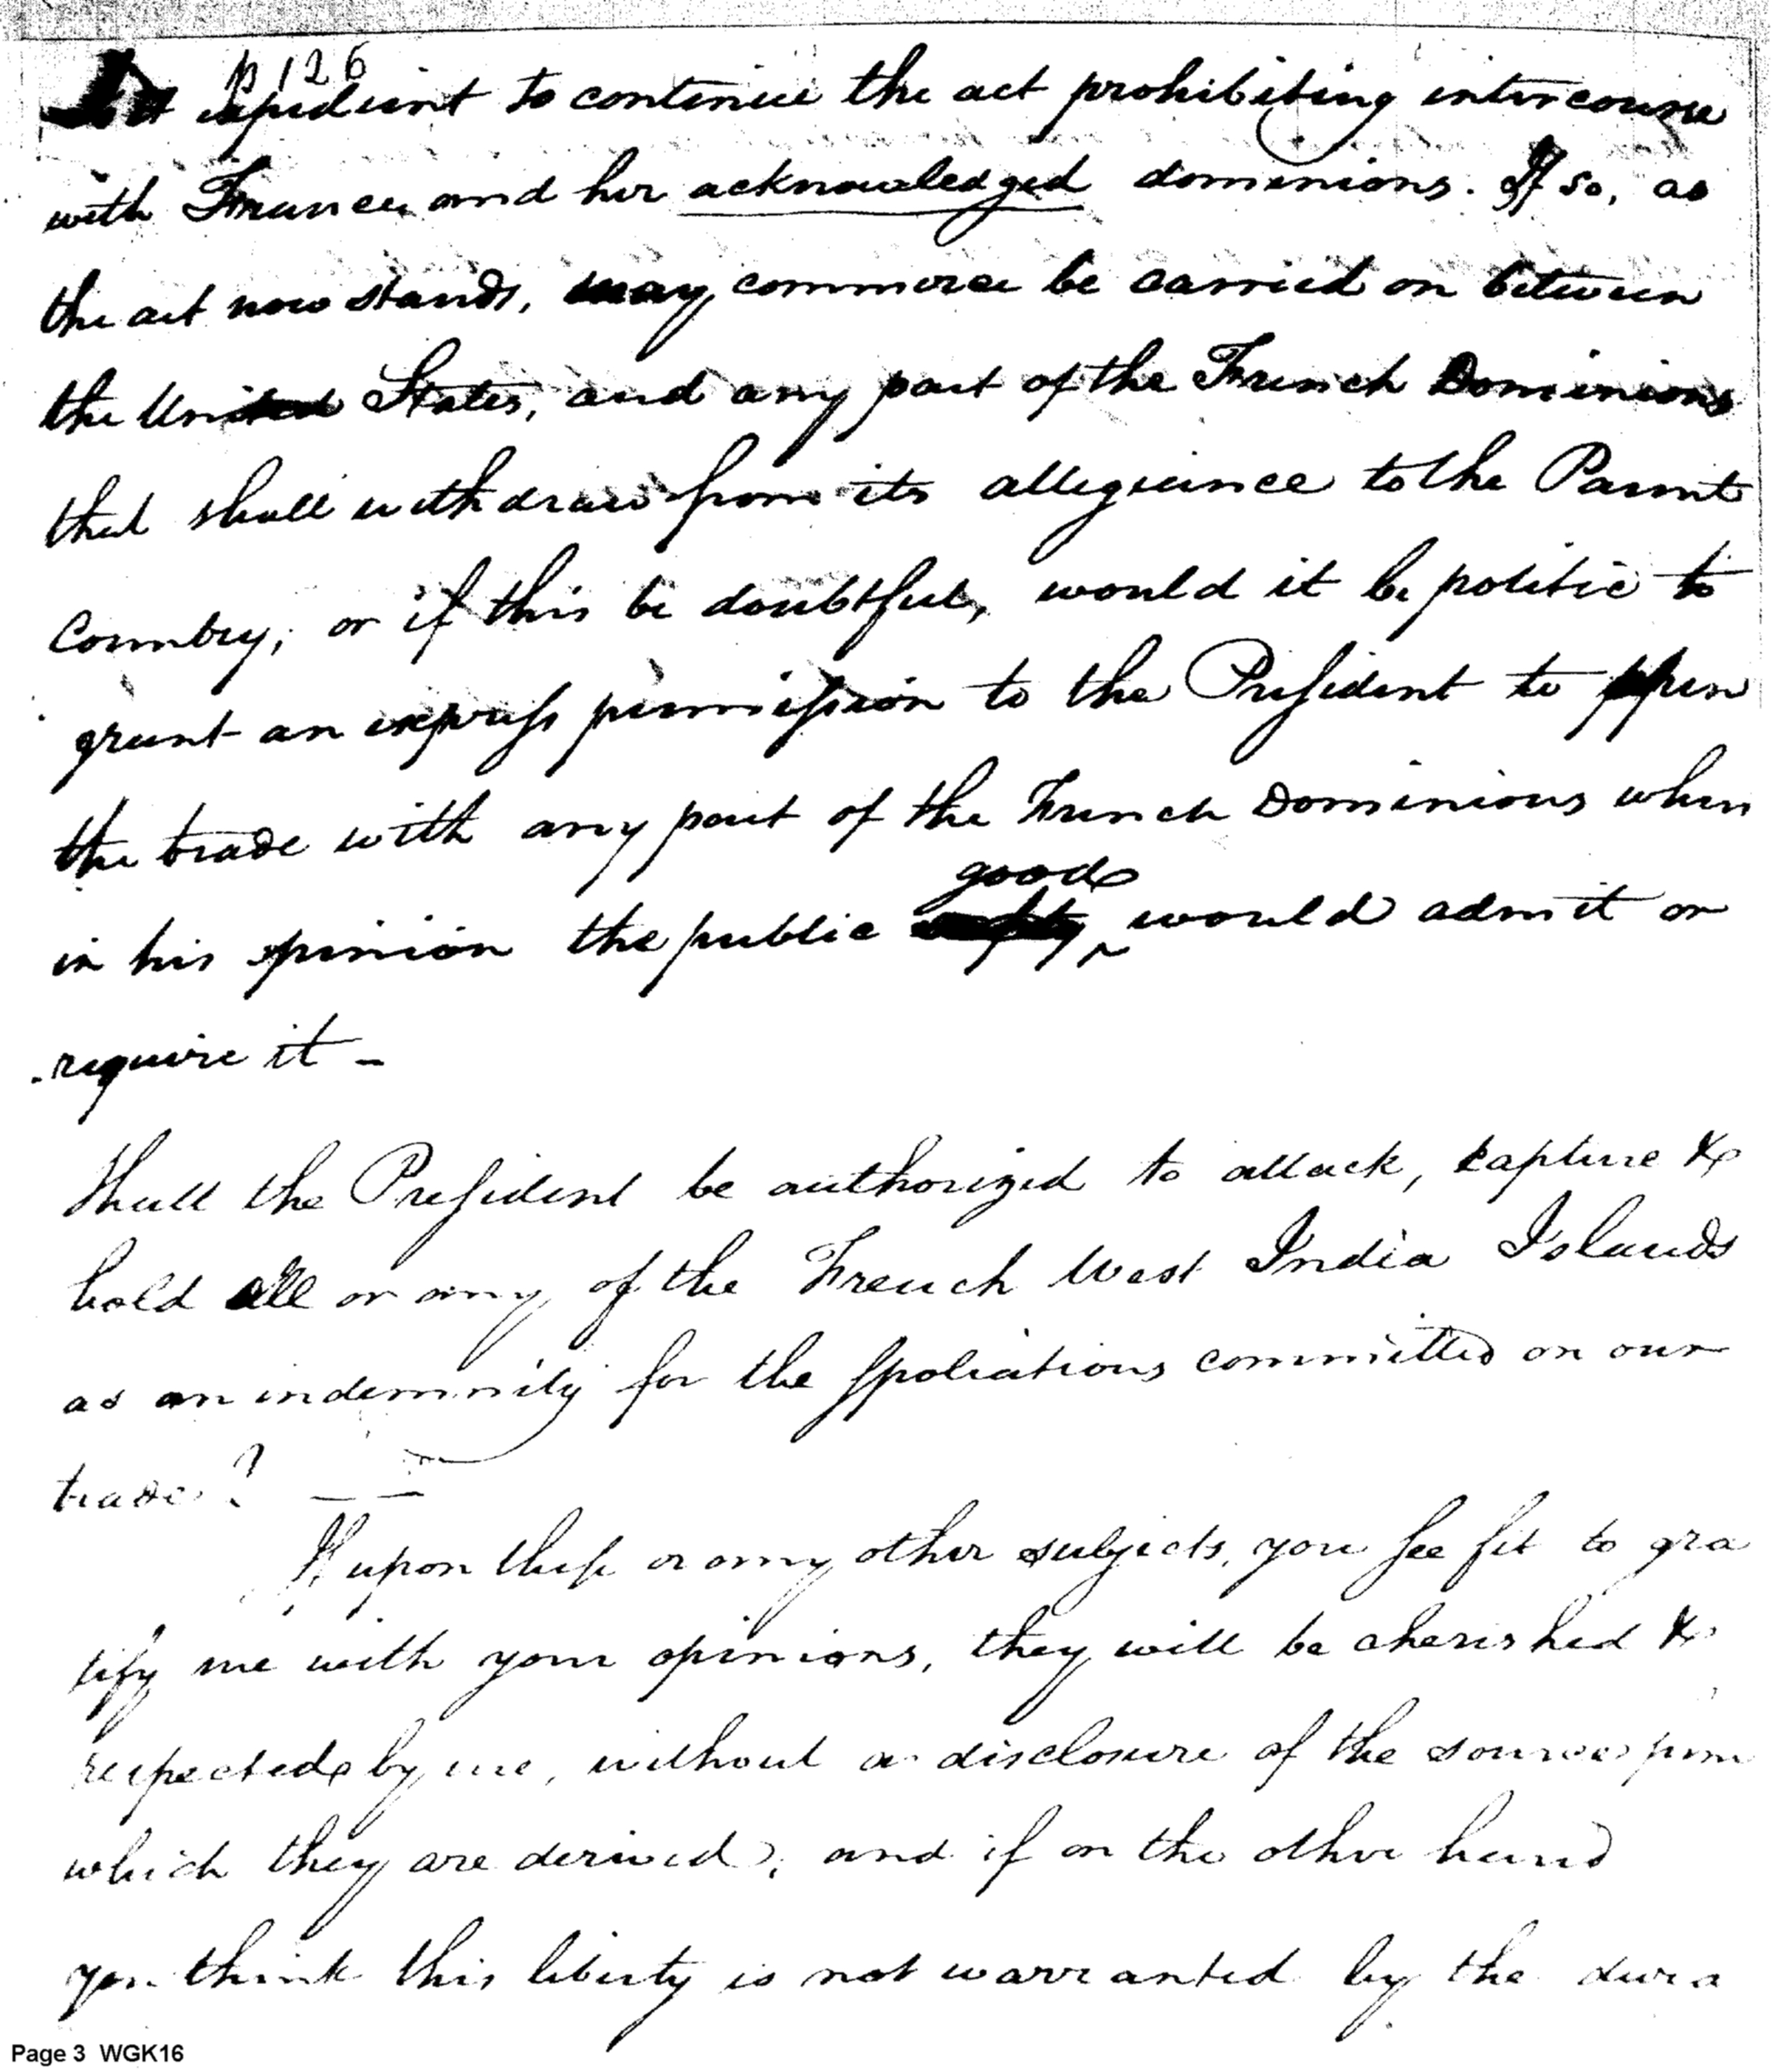 p 126
Is it expedient to continue the act prohibiting intercourse
with France and her acknowledged dominions. If so, as
the act now stands, may commerce be carried on between
the United States, and any part of the French Dominions
that shall withdraw from its allegiance to the Parent
Country; or if this be doubtful, would it be politic to
grant an express permission to the President to open
the trade with any part of the French Dominions when
good
in his opinion the public would admit or
require it -
Shall the President be authorized to attack, capture &
hold all or any of the French West India Islands
as an indemnity for the spoliations committed on our
trade? — —
If upon these or any other subjects, you see fit to gra
tify me with your opinions, they will be cherished &
respected by me, without a disclosure of the source from
which they are derived; and if on the other hand
you think this liberty is not warranted by the dura
Page 3 WGK16